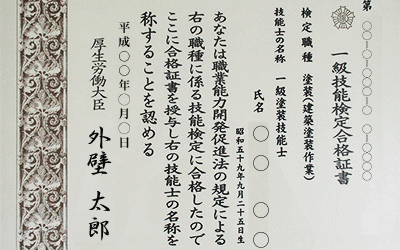 第〇〇-〇-〇〇〇-〇〇-〇〇〇〇
一級技能検定合格証書
検定職種　塗装(建築塗装作業)
技能士の名称　一級塗装技能士
氏名　〇〇　〇〇
昭和五十九年九月二十五日生
あなたは職業能力開発促進法の規定による
右の職種に係る技能検定に合格したので
ここに合格証書を授与し右の技能士の名称を
称することを認める
平成〇〇年〇月〇日
厚生労働大臣　外壁　太郎